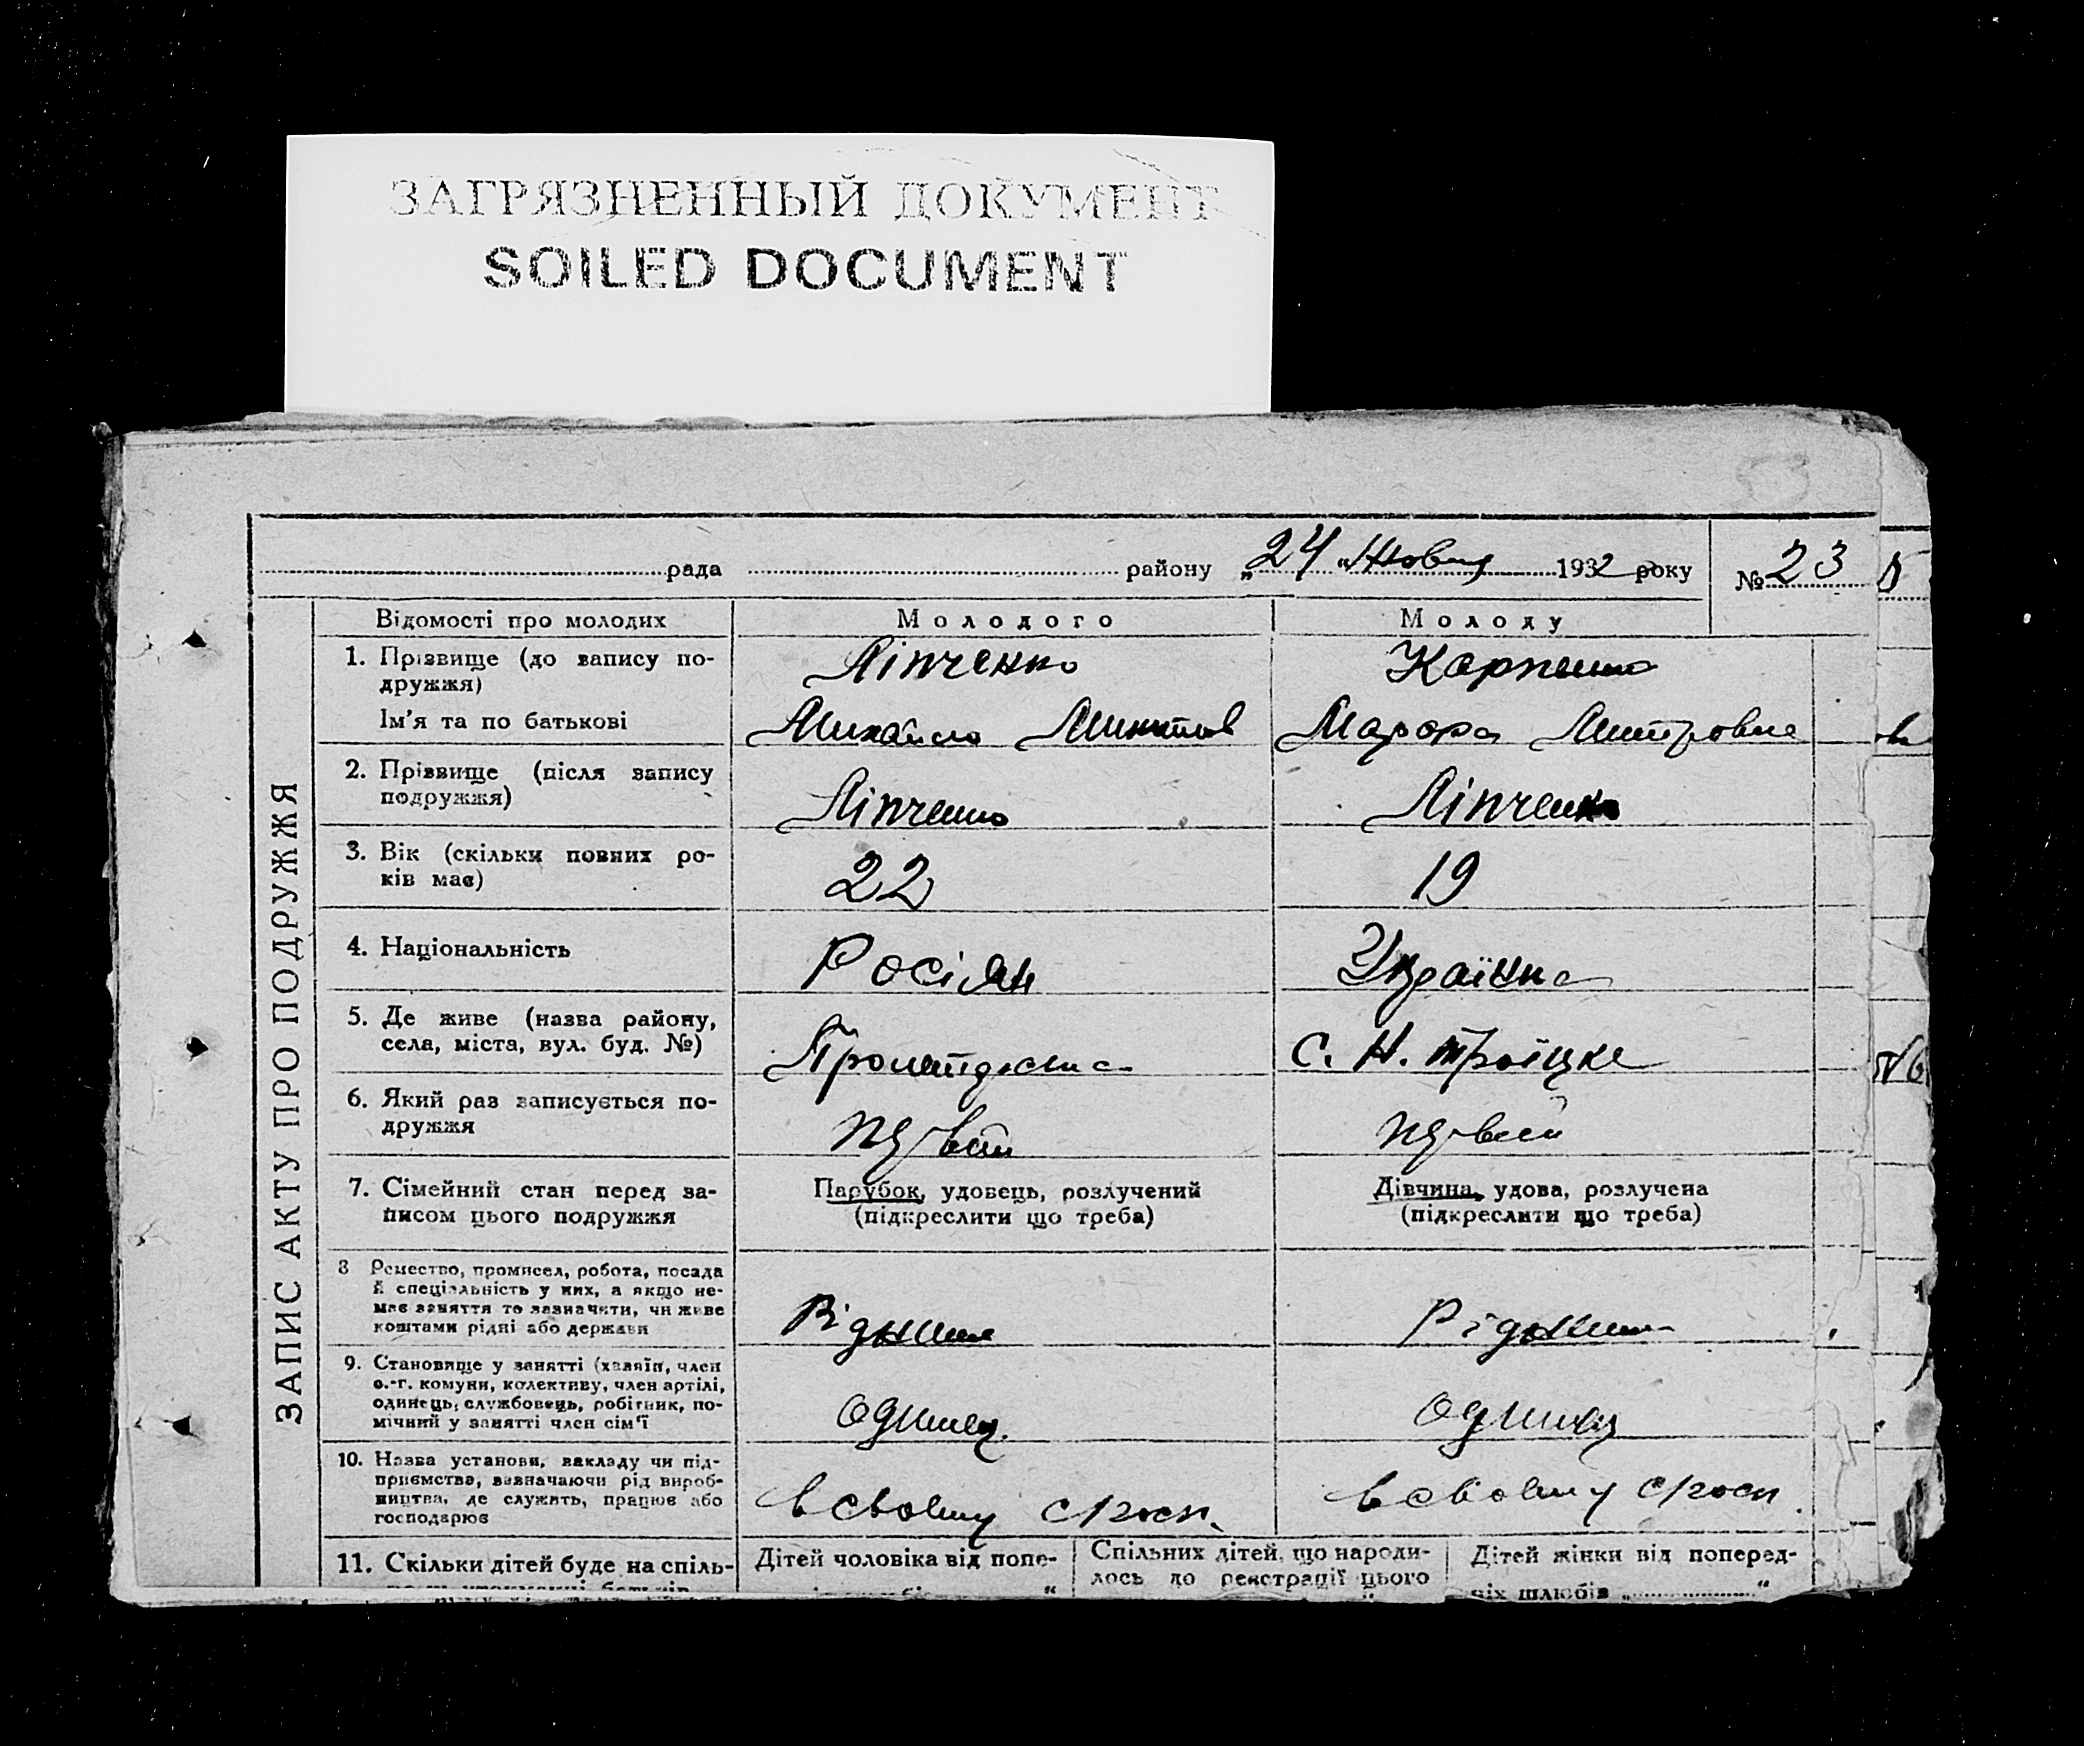 ЗАГРЯЗНЕННЫЙ ДОКУМЕНТ
SOILED DOCUMENT
рада району „24 " Жовтня 1932 року № 23
ЗАПИС АКТУ ПРО ПОДРУЖЖЯ
Відомості про молодих Молодого Молоду
1. Прізвище (до запису по-
дружжя) Ліпченко Карпенко
Ім'я та по батькові Михайло Микитов Митровна
2. Прізвище (після запису
подружжя) Ліпченко Ліпченко
3. Вік (скільки повних ро-
ків має) 22 19
4. Національність Росіян Українка
5. Де живе (назва району,
села, міста, вул. буд. №) С. Н. Троїцке
6. Який раз записується по-
дружжя первий первий
7. Сімейний стан перед за-
писом цього подружжя
Парубок, удовець, розлучений
(підкреслити що треба)
Дівчина, удова, розлучена
(підкреслити що треба)
8 Ремество, промисел, робота, посада
й спеціяльність у них, а якщо не-
має заняття то зазначити, чи живе
коштами рідні або держави
9. Становище у занятті (хазяїн, член
с.-г. комуни, колективу, член артілі,
одинець, службовець, робітник, по-
мічний у занятті член сім'ї
10. Назва установи, закладу чи під-
приємства, зазначаючи рід вироб-
ництва, де служить, працює або
господарює
в своему с/госп. в своему с/госп.
11. Скільки дітей буде на спіль-
Дітей чоловіка від попе-
Спільних дітей, що народи-
лось до реєстрації цього
Дітей жінки від поперед-
ніх шлюбів „ "